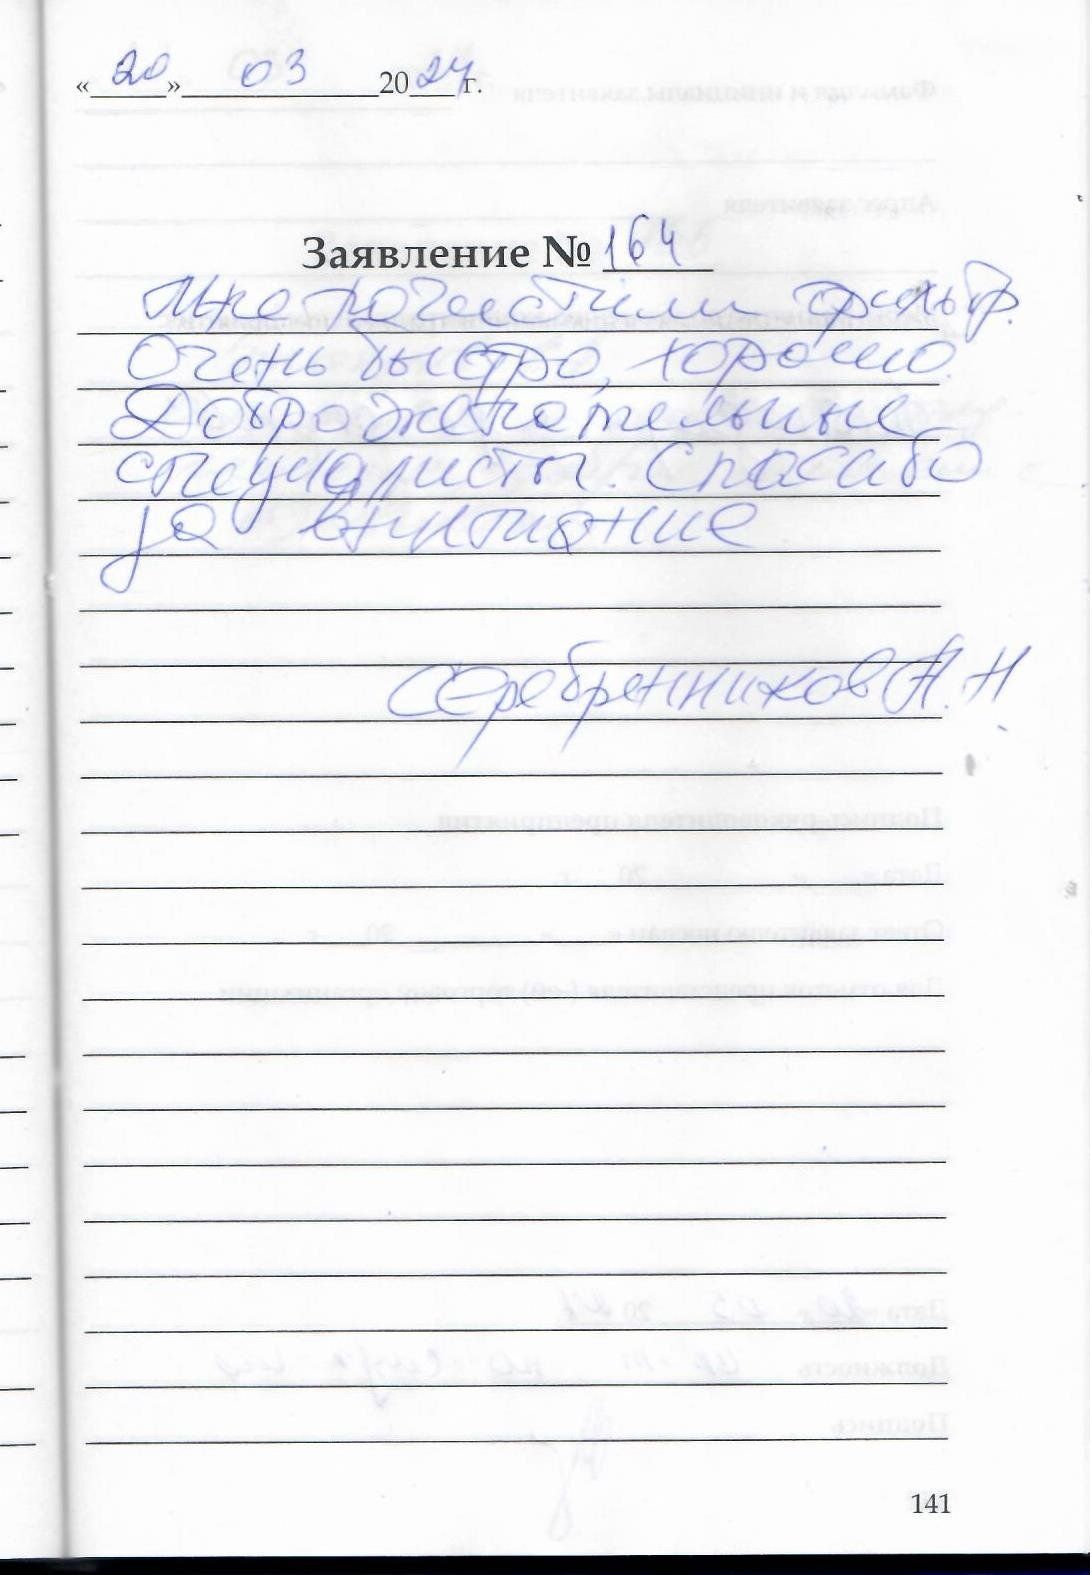 « 20 » 03 2024 г.
Заявление № 164
Мне прочистили фильтр.
Очень быстро, хорошо.
Доброжелательные
специалисты. Спасибо
за внимание
Серебренников А.Н
141